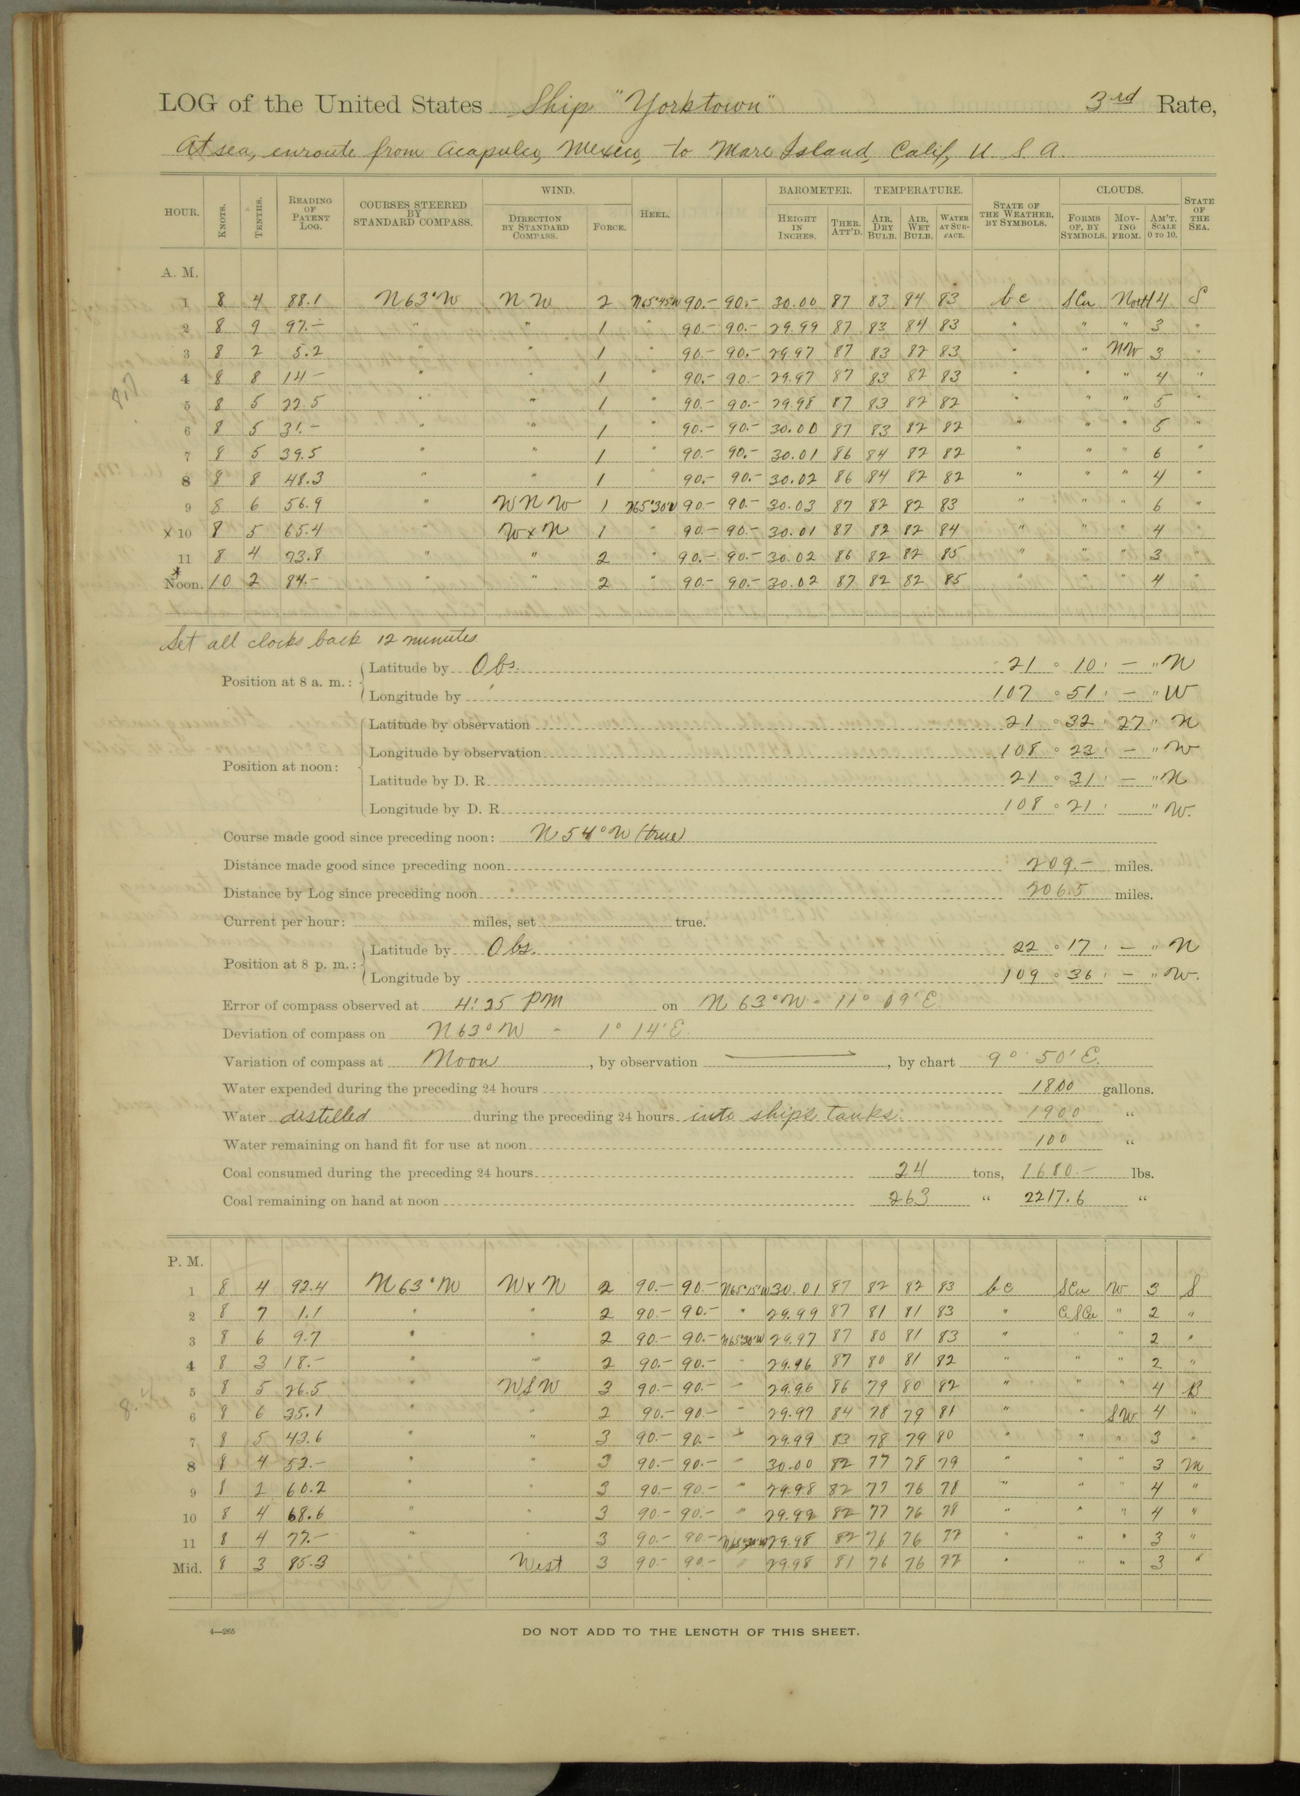 LOG of the United States Ship "Yorktown" 3rd Rate,
At sea, enroute from Acapulco, Mexico, to Mare Island, Calif, U. S. A.
HOUR. KNOTS. TENTHS. READING OF PATENT LOG. COURSES STEERED BY STANDARD COMPASS. WIND. DIRECTION BY STANDARD COMPASS. FORCE. HEEL. BAROMETER. HEIGHT IN INCHES. THER. ATT'D. TEMPERATURE. AIR, DRY BULB. AIR, WET BULB. WATER AT SURFACE. STATE OF THE WEATHER, BY SYMBOLS. CLOUDS. FORMS OF, BY SYMBOLS. MOVING FROM. AM'T. SCALE 0 TO 10. STATE OF THE SEA.
A. M.
1 8 4 88.1 N 63° W N W 2 N65°45W 90.- 90.- 30.00 87 83 84 83 bc SCu North 4 S
2 8 9 97.- " " 1 " 90.- 90.- 29.99 87 83 84 83 " " " 3 "
3 8 2 5.2 " " 1 " 90.- 90.- 29.97 87 83 82 83 " " NW 3 "
4 8 8 14.- " " 1 " 90.- 90.- 29.97 87 83 82 83 " " " 4 "
5 8 5 22.5 " " 1 " 90.- 90.- 29.98 87 83 82 82 " " " 5 "
6 8 5 31.- " " 1 " 90.- 90.- 30.00 87 83 82 82 " " " 5 "
7 8 5 39.5 " " 1 " 90.- 90.- 30.01 86 84 82 82 " " " 6 "
8 8 8 48.3 " 1 " 90.- 90.- 30.02 86 84 82 82 " " " 4 "
9 8 6 56.9 " W N W 1 N65°30W 90.- 90.- 30.03 87 82 82 83 " " " 6 "
x 10 8 5 65.4 " W x N 1 " 90.- 90.- 30.01 87 82 82 84 " " " 4 "
11 8 4 73.8 " " 2 " 90.- 90.- 30.02 86 82 82 85 " " " 3 "
Noon. 10 2 84.- " " 2 " 90.- 90.- 30.02 87 82 82 85 " " " 4 "
Set all clocks back 12 minutes
Position at 8 a. m.: Latitude by Obs. 21 ° 10 ' — " N
Longitude by ' 107 ° 51 ' — " W
Position at noon: Latitude by observation 21 ° 32 ' 27 " N
Longitude by observation 108 ° 23 ' — " W
Latitude by D. R. 21 ° 31 ' — " N
Longitude by D. R. 108 ° 21 ' " W.
Course made good since preceding noon: N 54° W (true)
Distance made good since preceding noon 209.- miles.
Distance by Log since preceding noon 206.5 miles.
Current per hour: miles, set true.
Position at 8 p. m.: Latitude by Obs. 22 ° 17 ' — " N
Longitude by 109 ° 36 ' — " W.
Error of compass observed at 4:25 PM on N 63° W - 11° 09' E
Deviation of compass on N 63° W - 1° 14' E.
Variation of compass at Noon, by observation ——, by chart 9° 50' E.
Water expended during the preceding 24 hours 1800 gallons.
Water distilled during the preceding 24 hours into ships tanks. 1900 "
Water remaining on hand fit for use at noon 100 "
Coal consumed during the preceding 24 hours 24 tons, 1680.- lbs.
Coal remaining on hand at noon 263 " 2217.6 "
P. M.
1 8 4 92.4 N 63° W W x N 2 90.- 90.- N65°15'W 30.01 87 82 82 83 bc SCu W 3 S
2 8 7 1.1 " " 2 90.- 90.- " 29.99 87 81 81 83 " C SCu " 2 "
3 8 6 9.7 " " 2 90.- 90.- N65°30'W 29.97 87 80 81 83 " " " 2 "
4 8 3 18.- " " 2 90.- 90.- " 29.96 87 80 81 82 " " " 2 "
5 8 5 26.5 " W S W 3 90.- 90.- " 29.96 86 79 80 82 " " " 4 B
6 8 6 35.1 " " 2 90.- 90.- " 29.97 84 78 79 81 " " SW 4 "
7 8 5 43.6 " " 3 90.- 90.- " 29.99 83 78 79 80 " " " 3 "
8 8 4 52.- " " 3 90.- 90.- " 30.00 82 77 78 79 " " " 3 M
9 8 2 60.2 " " 3 90.- 90.- " 29.98 82 77 76 78 " " 4 "
10 8 4 68.6 " " 3 90.- 90.- " 29.99 82 77 76 78 " " " 4 "
11 8 4 77.- " " 3 90.- 90.- 29.98 82 76 76 77 " " " 3 "
Mid. 8 3 85.3 West 3 90.- 90.- " 29.98 81 76 76 77 " " " 3 "
4—265
DO NOT ADD TO THE LENGTH OF THIS SHEET.